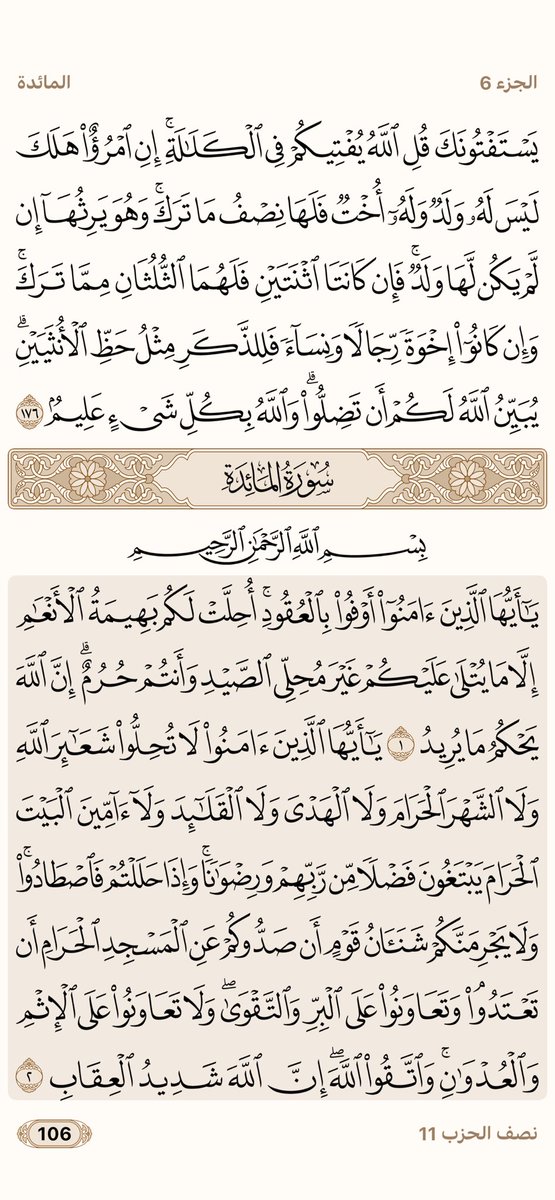 الجزء 6
المائدة
يَسْتَفْتُونَكَ قُلِ ٱللَّهُ يُفْتِيكُمْ فِى ٱلْكَلَـٰلَةِ ۚ إِنِ ٱمْرُؤٌا۟ هَلَكَ
لَيْسَ لَهُۥ وَلَدٌ وَلَهُۥٓ أُخْتٌ فَلَهَا نِصْفُ مَا تَرَكَ ۚ وَهُوَ يَرِثُهَآ إِن
لَّمْ يَكُن لَّهَا وَلَدٌ ۚ فَإِن كَانَتَا ٱثْنَتَيْنِ فَلَهُمَا ٱلثُّلُثَانِ مِمَّا تَرَكَ ۚ
وَإِن كَانُوٓا۟ إِخْوَةً رِّجَالًا وَنِسَآءً فَلِلذَّكَرِ مِثْلُ حَظِّ ٱلْأُنثَيَيْنِ ۗ
يُبَيِّنُ ٱللَّهُ لَكُمْ أَن تَضِلُّوا۟ ۗ وَٱللَّهُ بِكُلِّ شَىْءٍ عَلِيمٌۢ ١٧٦
سُورَةُ المَائِدَةِ
بِسْمِ ٱللَّهِ ٱلرَّحْمَـٰنِ ٱلرَّحِيمِ
يَـٰٓأَيُّهَا ٱلَّذِينَ ءَامَنُوٓا۟ أَوْفُوا۟ بِٱلْعُقُودِ ۚ أُحِلَّتْ لَكُم بَهِيمَةُ ٱلْأَنْعَـٰمِ
إِلَّا مَا يُتْلَىٰ عَلَيْكُمْ غَيْرَ مُحِلِّى ٱلصَّيْدِ وَأَنتُمْ حُرُمٌ ۗ إِنَّ ٱللَّهَ
يَحْكُمُ مَا يُرِيدُ ١ يَـٰٓأَيُّهَا ٱلَّذِينَ ءَامَنُوا۟ لَا تُحِلُّوا۟ شَعَـٰٓئِرَ ٱللَّهِ
وَلَا ٱلشَّهْرَ ٱلْحَرَامَ وَلَا ٱلْهَدْىَ وَلَا ٱلْقَلَـٰٓئِدَ وَلَآ ءَآمِّينَ ٱلْبَيْتَ
ٱلْحَرَامَ يَبْتَغُونَ فَضْلًا مِّن رَّبِّهِمْ وَرِضْوَٰنًا ۚ وَإِذَا حَلَلْتُمْ فَٱصْطَادُوا۟ ۚ
وَلَا يَجْرِمَنَّكُمْ شَنَـَٔانُ قَوْمٍ أَن صَدُّوكُمْ عَنِ ٱلْمَسْجِدِ ٱلْحَرَامِ أَن
تَعْتَدُوا۟ ۘ وَتَعَاوَنُوا۟ عَلَى ٱلْبِرِّ وَٱلتَّقْوَىٰ ۖ وَلَا تَعَاوَنُوا۟ عَلَى ٱلْإِثْمِ
وَٱلْعُدْوَٰنِ ۚ وَٱتَّقُوا۟ ٱللَّهَ ۖ إِنَّ ٱللَّهَ شَدِيدُ ٱلْعِقَابِ ٢
نصف الحزب 11
106